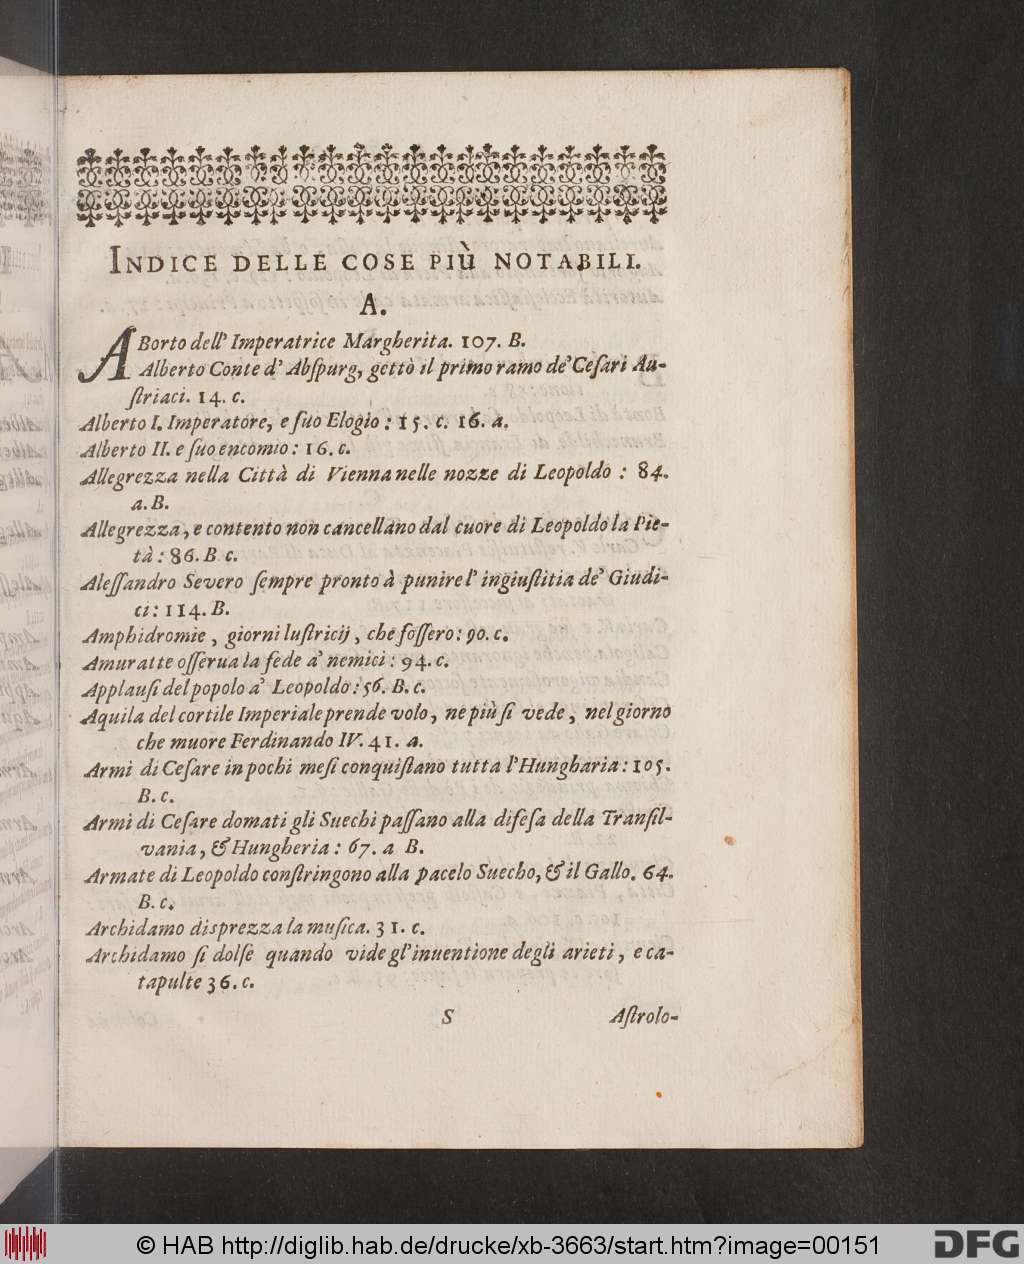 INDICE DELLE COSE PIÙ NOTABILI.
A.
ABorto dell' Imperatrice Margherita. 107. B.
Alberto Conte d' Abſpurg, gettò il primo ramo de' Ceſari Au-
ſtriaci. 14. c.
Alberto I. Imperatore, e ſuo Elogio : 15. c. 16. a.
Alberto II. e ſuo encomio : 16. c.
Allegrezza nella Città di Vienna nelle nozze di Leopoldo : 84.
a. B.
Allegrezza, e contento non cancellano dal cuore di Leopoldo la Pie-
tà : 86. B c.
Aleſſandro Severo ſempre pronto à punire l' ingiuſtitia de' Giudi-
ci : 114. B.
Amphidromie , giorni luſtricij , che foſſero : 90. c.
Amuratte oſſerua la fede a' nemici : 94. c.
Applauſi del popolo a' Leopoldo : 56. B. c.
Aquila del cortile Imperiale prende volo , ne più ſi vede , nel giorno
che muore Ferdinando IV. 41. a.
Armi di Ceſare in pochi meſi conquiſtano tutta l' Hungharia : 105.
B. c.
Armi di Ceſare domati gli Suechi paſſano alla difeſa della Tranſil-
vania , & Hungheria : 67. a B.
Armate di Leopoldo conſtringono alla pace lo Suecho, & il Gallo. 64.
B. c.
Archidamo disprezza la muſica. 31. c.
Archidamo ſi dolſe quando vide gl' inuentione degli arieti , e ca-
tapulte 36. c.
S Aſtrolo-
© HAB http://diglib.hab.de/drucke/xb-3663/start.htm?image=00151
DFG